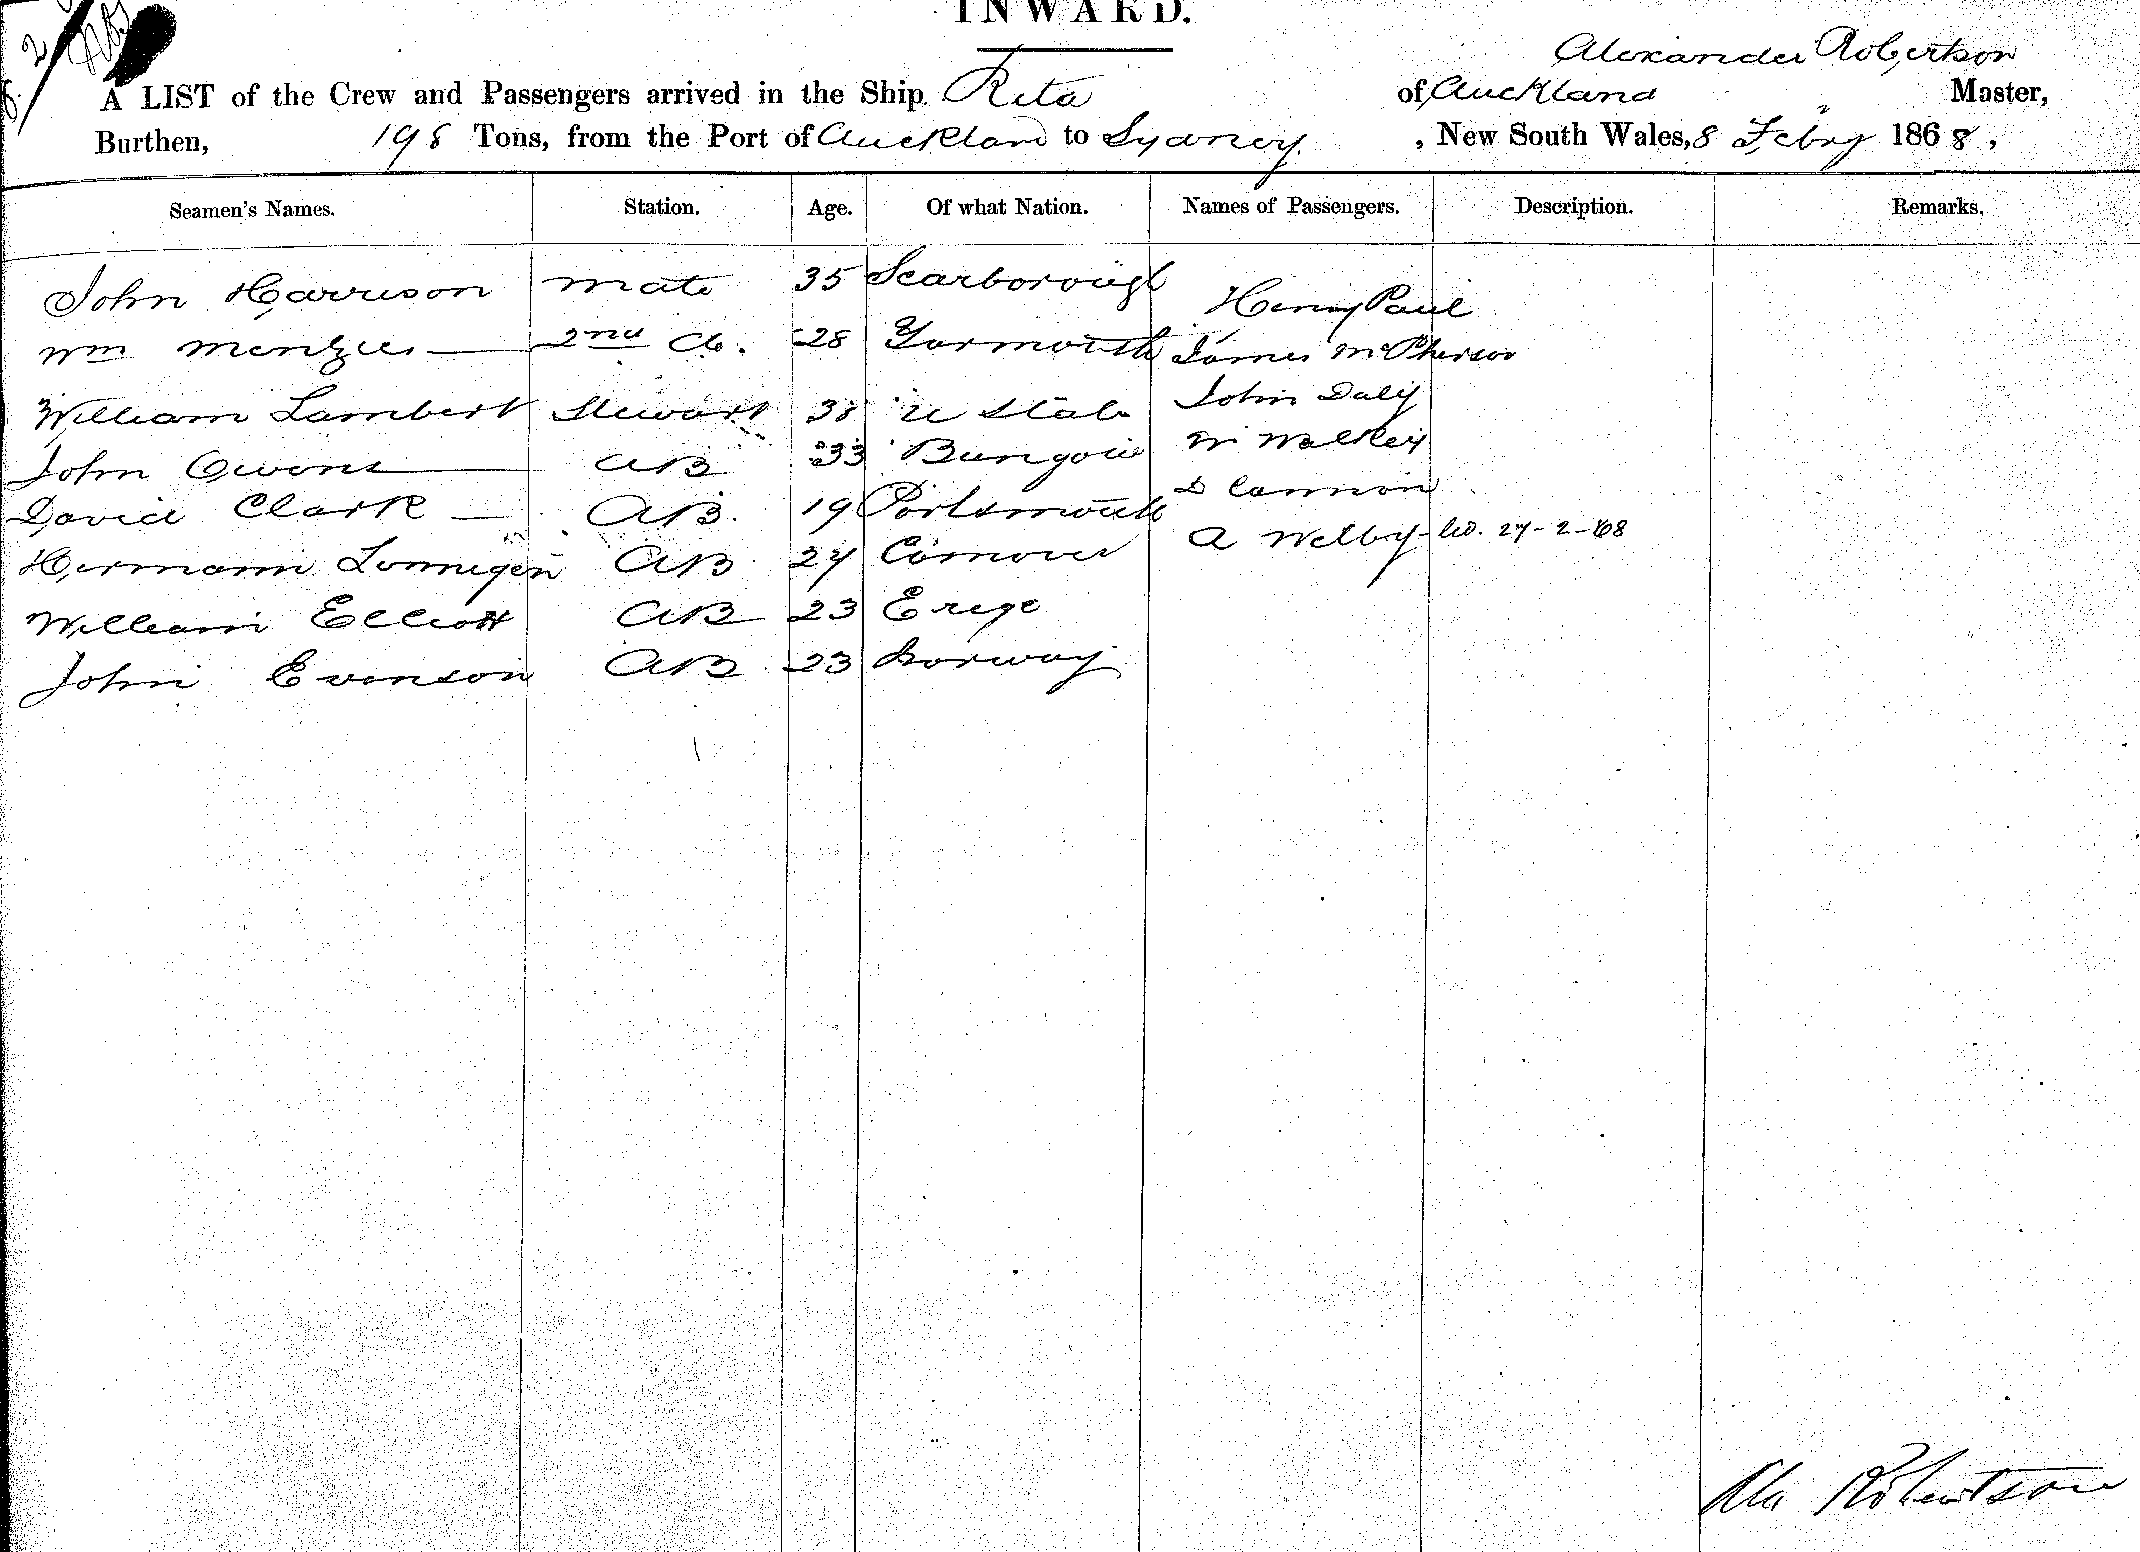 INWARD.
Alexander Robertson
A LIST of the Crew and Passengers arrived in the Ship Rita of Auckland Master,
Burthen, 198 Tons, from the Port of Auckland to Sydney , New South Wales, 8 Febry 1868,
Seamen's Names. Station. Age. Of what Nation. Names of Passengers. Description. Remarks.
John Harrison mate 35 Scarborough Henry Paul
Wm Menzies 2nd do. 28 Yarmouth James McPherson
William Lambert Steward 38 U State John Daly
John Owens AB 33
David Clark AB. 19 Portsmouth D Cannon
Hermann Lonnegen AB 27 A Welby 27-2-68
William Elliott AB 23
John Evenson AB 23 Norway
Alx Robertson